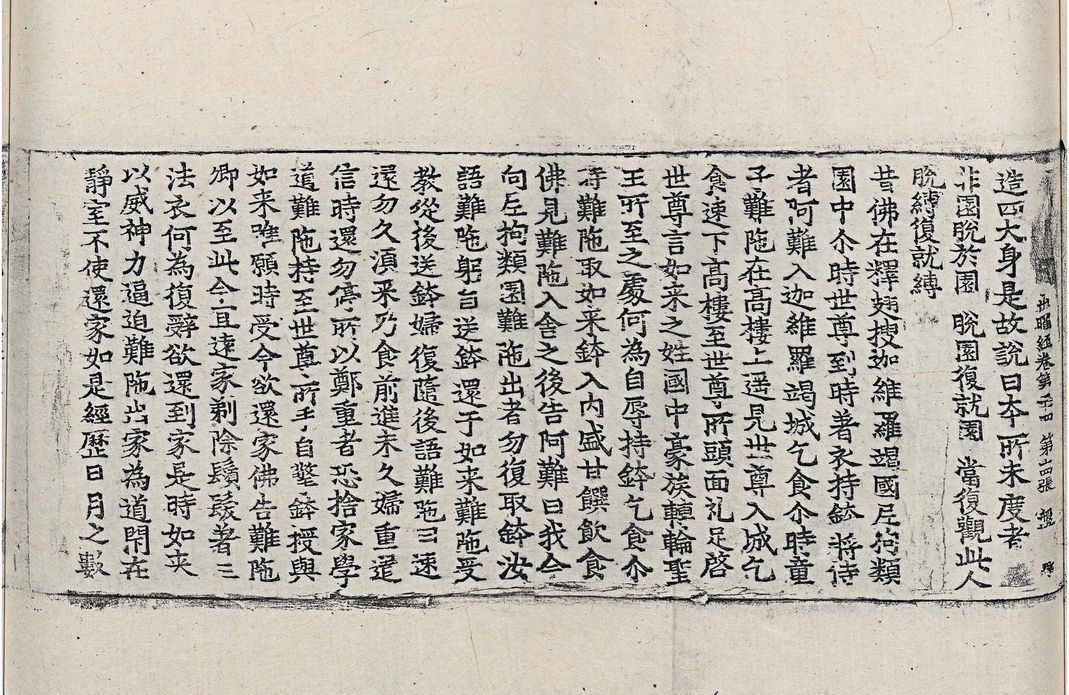 出曜經卷第二十四 第十四張 盤
造四大身是故說曰本所未度者
非園脫於園 脫園復就園 當復觀此人
脫縛復就縛
昔佛在釋翅搜迦維羅竭國尼拘類
園中尒時世尊到時著衣持鉢將侍
者阿難入迦維羅竭城乞食尒時童
子難陁在高樓上遥見世尊入城乞
食速下高樓至世尊所頭面礼足啓
世尊言如来之姓國中豪族轉輪聖
王所至之處何為自辱持鉢乞食尒
時難陁取如来鉢入內盛甘饌飲食
佛見難陁入舍之後告阿難曰我今
向尼拘類園難陁出者勿復取鉢汝
語難陁躬自送鉢還于如来難陁受
教從後送鉢婦復隨後語難陁曰速
還勿久滇来乃食前進未久婦重遣
信時還勿停所以鄭重者恐捨家學
道難陁持至世尊所手自擎鉢授與
如来唯願時受今欲還家佛告難陁
卿以至此今宜遠家剃除鬚髮著三
法衣何為復辭欲還到家是時如来
以威神力逼迫難陁出家為道閇在
靜室不使還家如是經歷日月之數